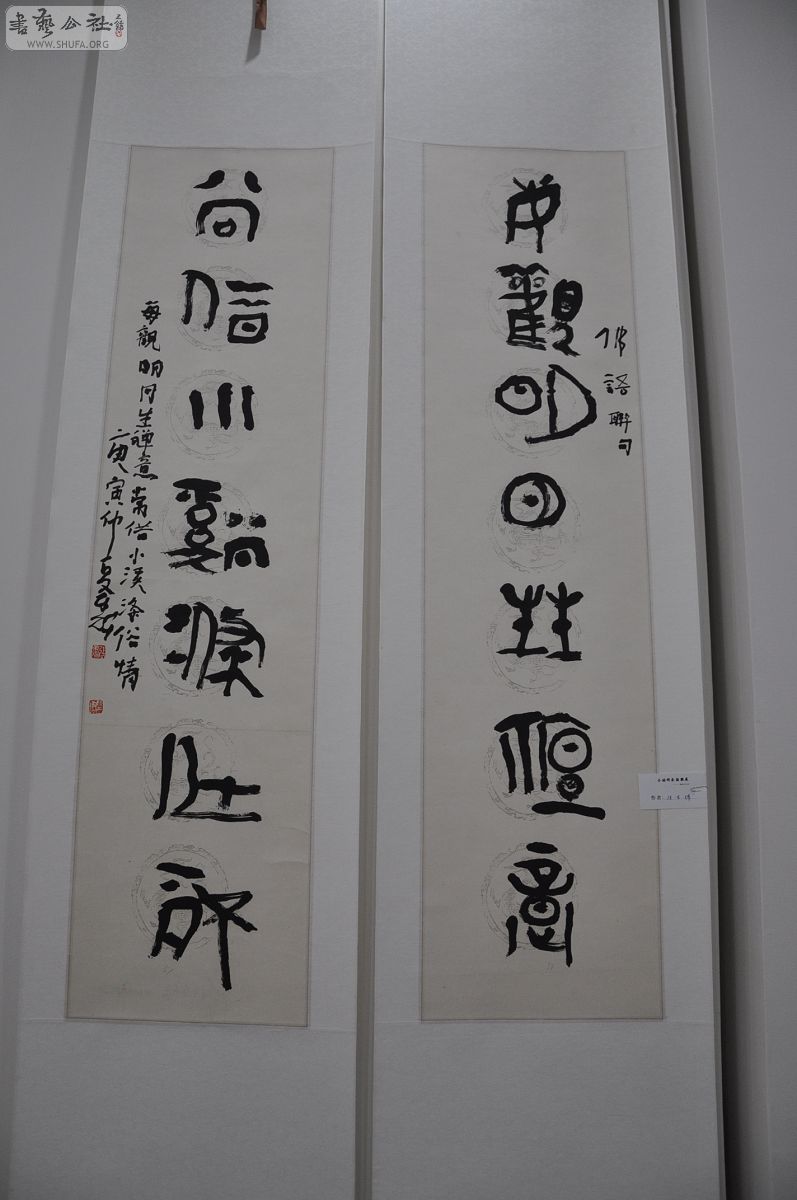 書藝公社
WWW.SHUFA.ORG
每觀明月生禪意
佛語聯句
尚借小谿滌
每觀明月生禅意常借小溪滌俗情
庚寅仲夏
作者: